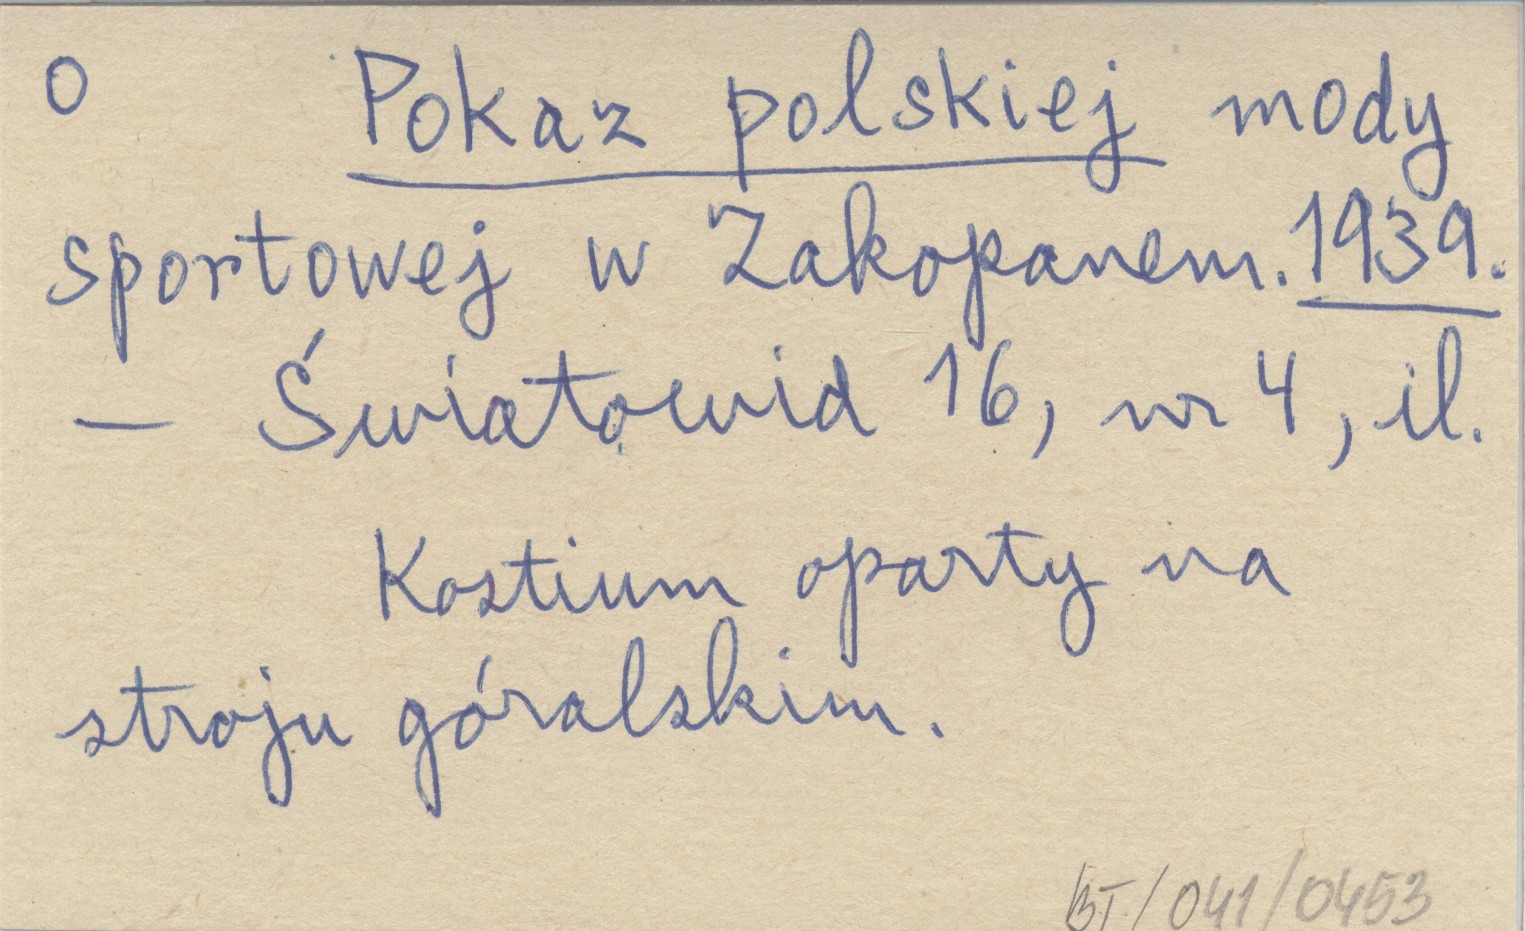 O Pokaz polskiej mody
sportowej w Zakopanem. 1939.
— Światowid 16, nr 4, il.
Kostium oparty na
stroju góralskim.
BT/041/0453